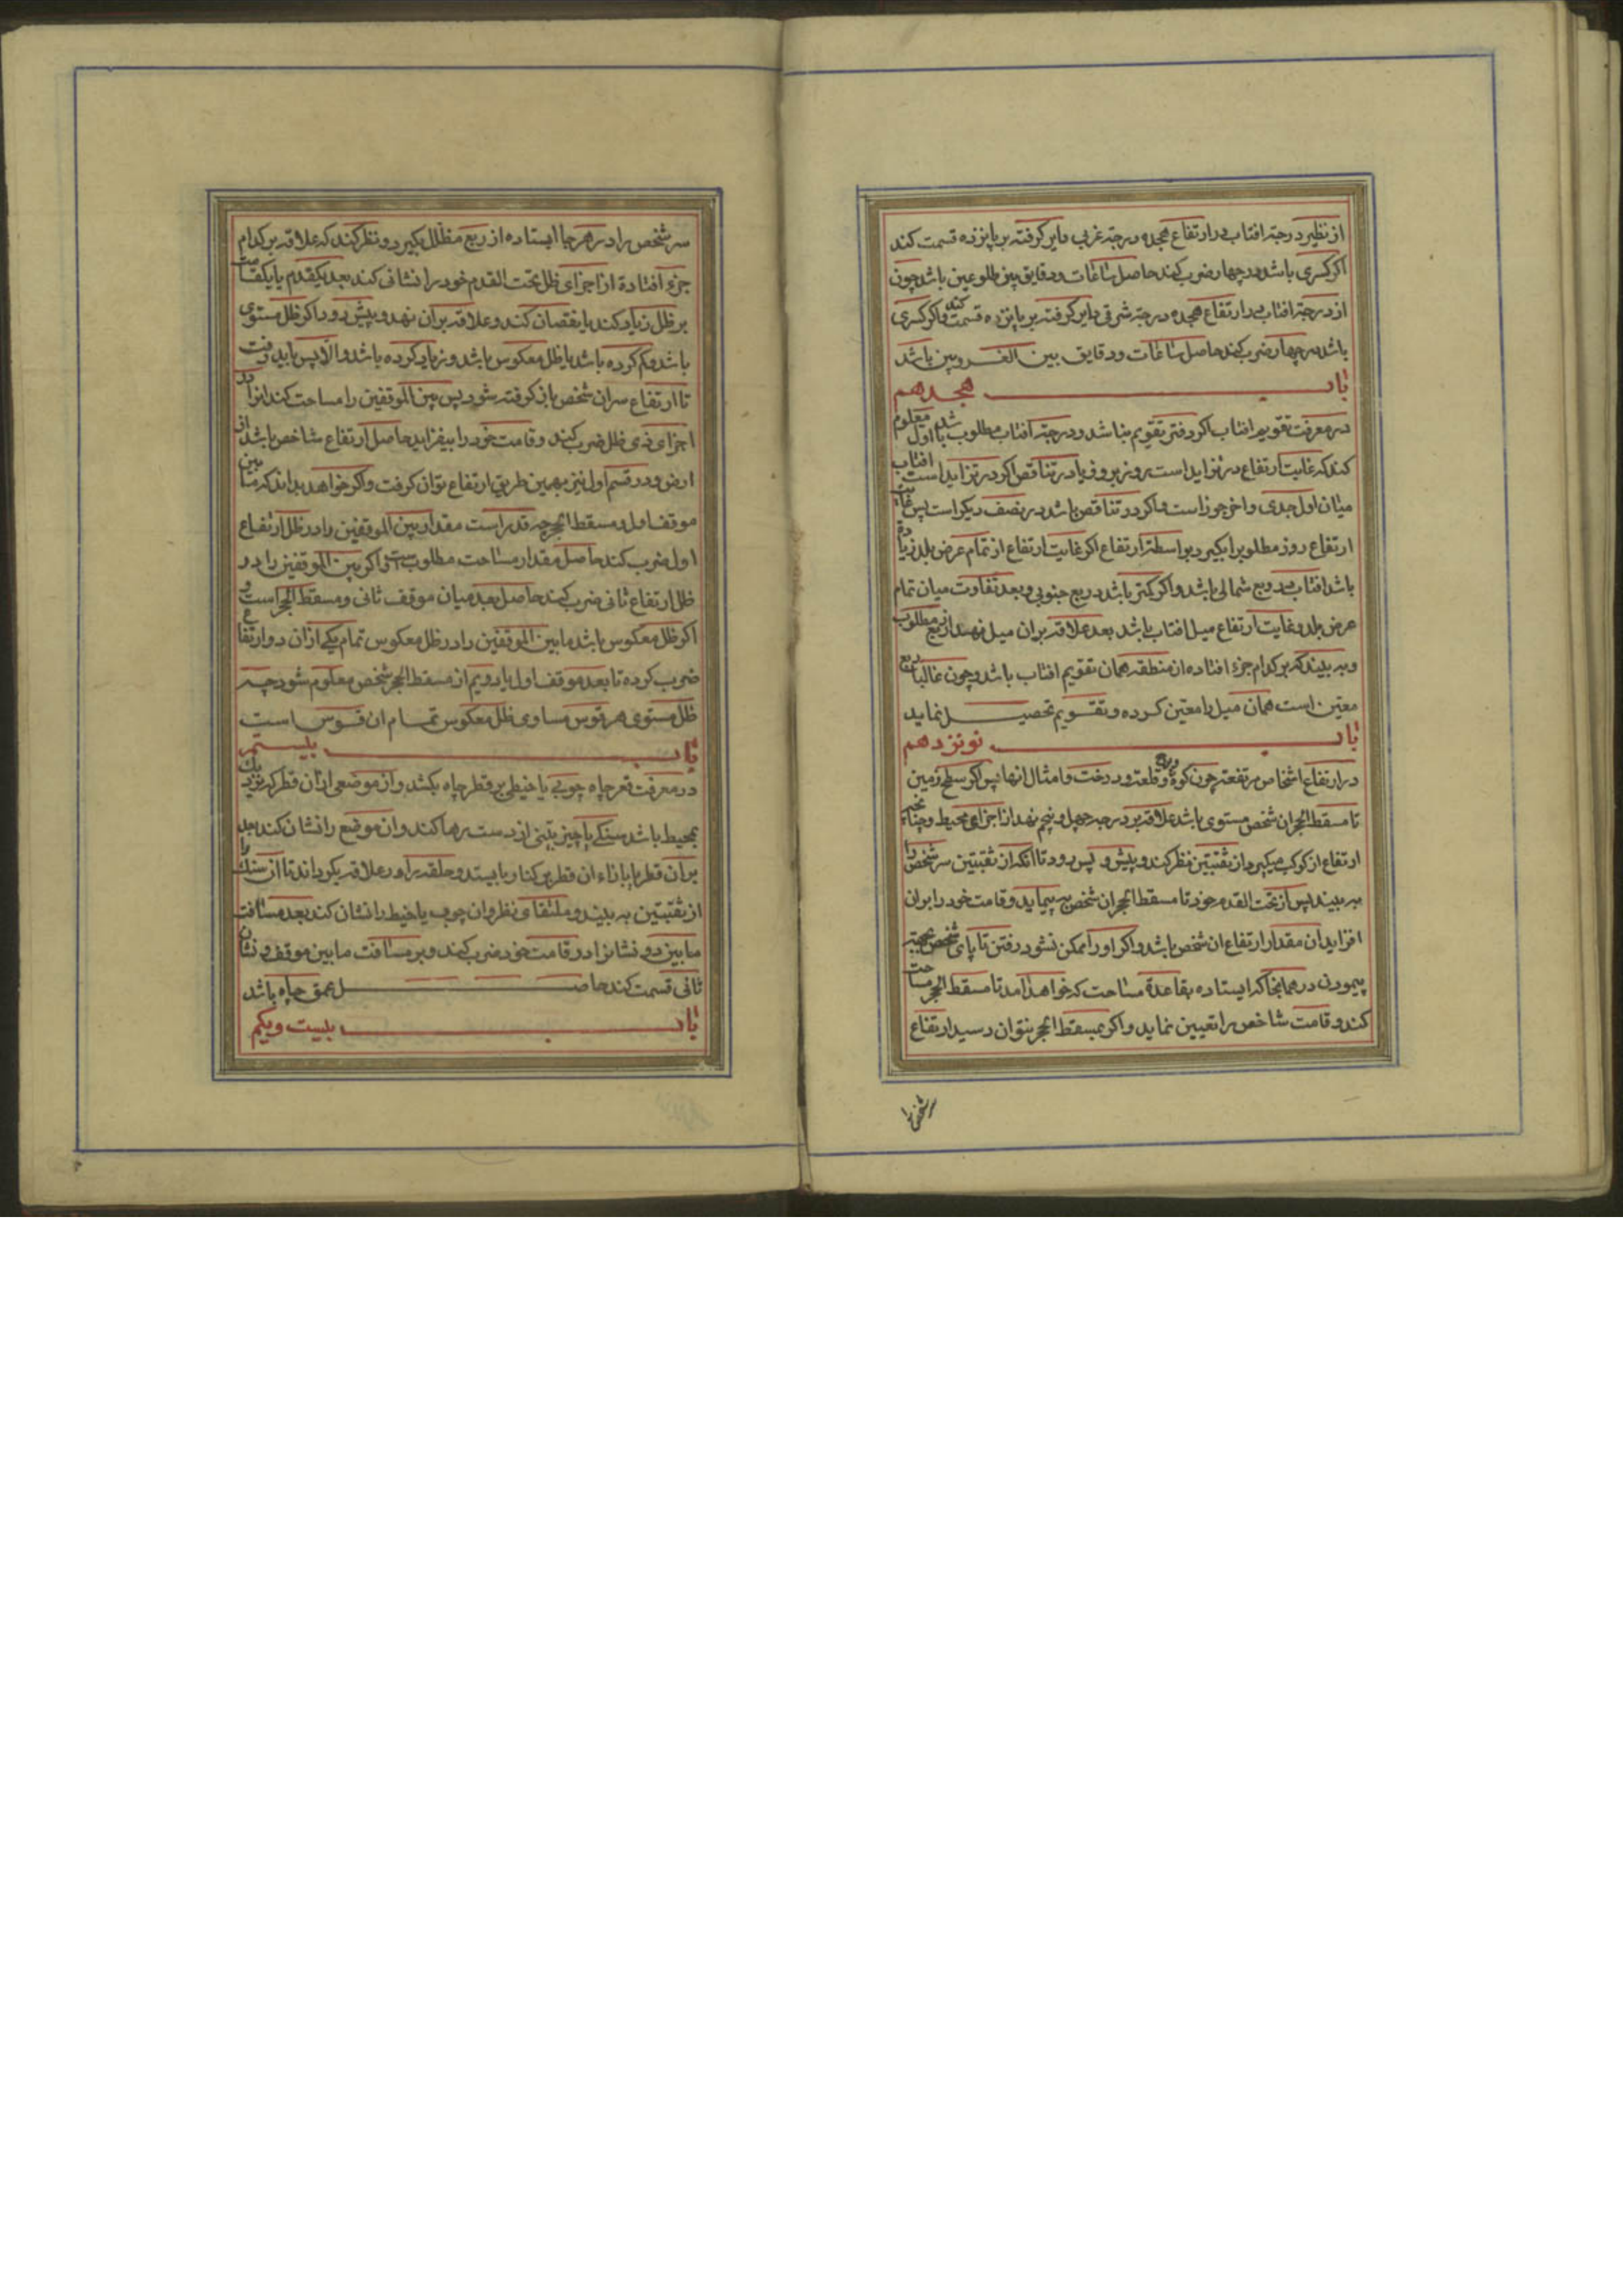 از نظیر درجهٔ افتاب در ارتفاع هجده درجهٔ غربی دایر کرفته بر پانزده قسمت کند
اکر کسری باشد در چهار ضرب کند حاصل ساعات و دقایق بین طلوعین باشد چون
از درجهٔ افتاب در ارتفاع هجده درجهٔ شرقی دایر کرفته بر پانزده قسمت کند و اکر کسری
باشد در چهار ضرب کند حاصل ساعات و دقایق بین الغروبین باشد
باب هجدهم
در معرفت تقویم افتاب اکر دفتر تقویم نباشد و درجهٔ افتاب مطلوب باشد اول معلوم
کند که غایت ارتفاع در تزاید است روز بروز یا در تناقص اکر در تزاید است افتاب
میان اول جدی و اخر جوزاست و اکر در تناقص باشد در نصف دیکر است پس غایت
ارتفاع روز مطلوب را بکیرد بواسطهٔ ارتفاع اکر غایت ارتفاع از تمام عرض بلد زیاده
باشد افتاب در ربع شمالی باشد و اکر کمتر باشد در ربع جنوبی و بعد تفاوت میان تمام
عرض بلد و غایت ارتفاع میل افتاب باشد بعد علاقه بران میل نهند از ربع مطلوب
و به بیند که بر کدام جزء افتاده از منطقه همان تقویم افتاب باشد و چون غالبا ربع
معین است همان میل را معین کرده و تقویم تحصیل نماید
باب نونزدهم
در ارتفاع اشخاص مرتفعه چون کوه و قلعه و درخت و امثال انها پس اکر سطح زمین
تا مسقط الحجر ان شخص مستوی باشد علاقه بر درجه چهل و پنجم نهد از اجزای محیط و چنانچه
ارتفاع از کوکب میکیرد از ثقبتین نظر کند و پیش و پس رود تا انکه از ثقبتین سر شخص را
به بیند پس از تحت القدم خود تا مسقط الحجر ان شخص به پیماید و قامت خود را بران
افزاید ان مقدار ارتفاع ان شخص باشد و اکر او را ممکن نشود رفتن تا پای شخص بجهته
پیمودن در همانجا که ایستاده بقاعدهٔ مساحت که خواهد امد تا مسقط الحجر مساحت
کند و قامت شاخص را تعیین نماید و اکر بمسقط الحجر نتوان رسید ارتفاع
سر شخص را
سر شخص را در هر جا ایستاده از ربع مظلل بکیرد و نظر کند که علاقه بر کدام
جزء افتادة از اجزای ظل تحت القدم خود را نشانی کند بعد یکقدم یا یکقامت
بر ظل زیاد کند یا نقصان کند و علاقه بران نهد و پیش رود اکر ظل مستوی
باشد و کم کرده باشد یا ظل معکوس باشد و زیاد کرده باشد و الا پس باید رفت
تا ارتفاع سر ان شخص باز کرفته شود پس بین الموقفین را مساحت کند انرا در
اجزای ذی ظل ضرب کند و قامت خود را بیفزاید حاصل ارتفاع شاخص باشد از
ارض و در قسم اول نیز بهمین طریق ارتفاع توان کرفت و اکر خواهد بداند که ما بین
موقف اول و مسقط الحجر چه قدر است مقدار بین الموقفین را در ظل ارتفاع
اول ضرب کند حاصل مقدار مساحت مطلوبست و اکر بین الموقفین را در
ظل ارتفاع ثانی ضرب کند حاصل بعد میان موقف ثانی و مسقط الحجر است و
اکر ظل معکوس باشد ما بین الموقفین را در ظل معکوس تمام یکی از ان دو ارتفاع
ضرب کرده تا بعد موقف اول یا دویم از مسقط الحجر شخص معلوم شود چه
ظل مستوی هر قوس مساوی ظل معکوس تمام ان قوس است
باب بیستم
در معرفت قعر چاه چوبی یا خیطی بر قطر چاه بکشد و از موضعی از ان قطر که نزدیک
بمحیط باشد سنکی یا چیز ثقیلی از دست رها کند و ان موضع را نشان کند بعد
بران قطر یا بازاء ان قطر بر کنار بایستد و حلقه را و علاقه بکرداند تا ان سنک را
از ثقبتین به بیند و ملتقای نظر و ان چوب یا خیط را نشان کند بعد مسافت
ما بین دو نشانرا در قامت خود ضرب کند و بر مسافت ما بین موقف و نشان
ثانی قسمت کند حاصل عمق چاه باشد
باب بیست و یکم